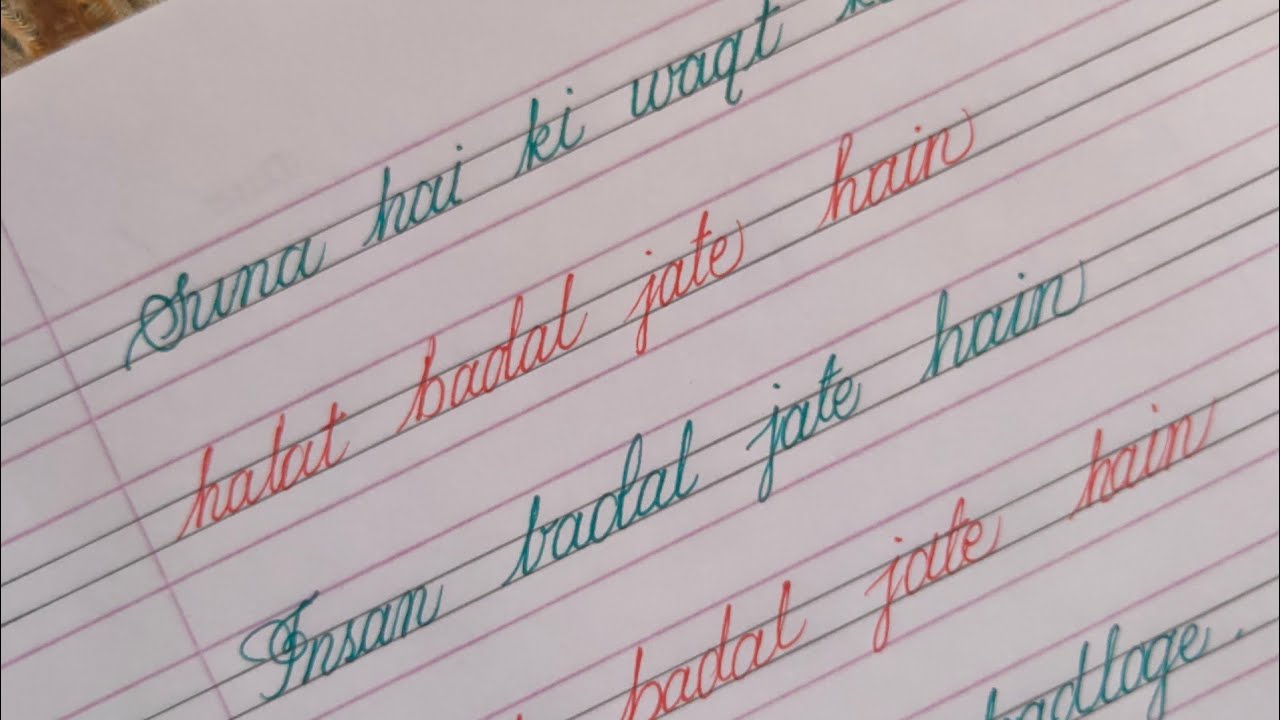 Suna hai ki waqt
halat badal jate hain
Insan badal jate hain
badal jate hain
badloge.